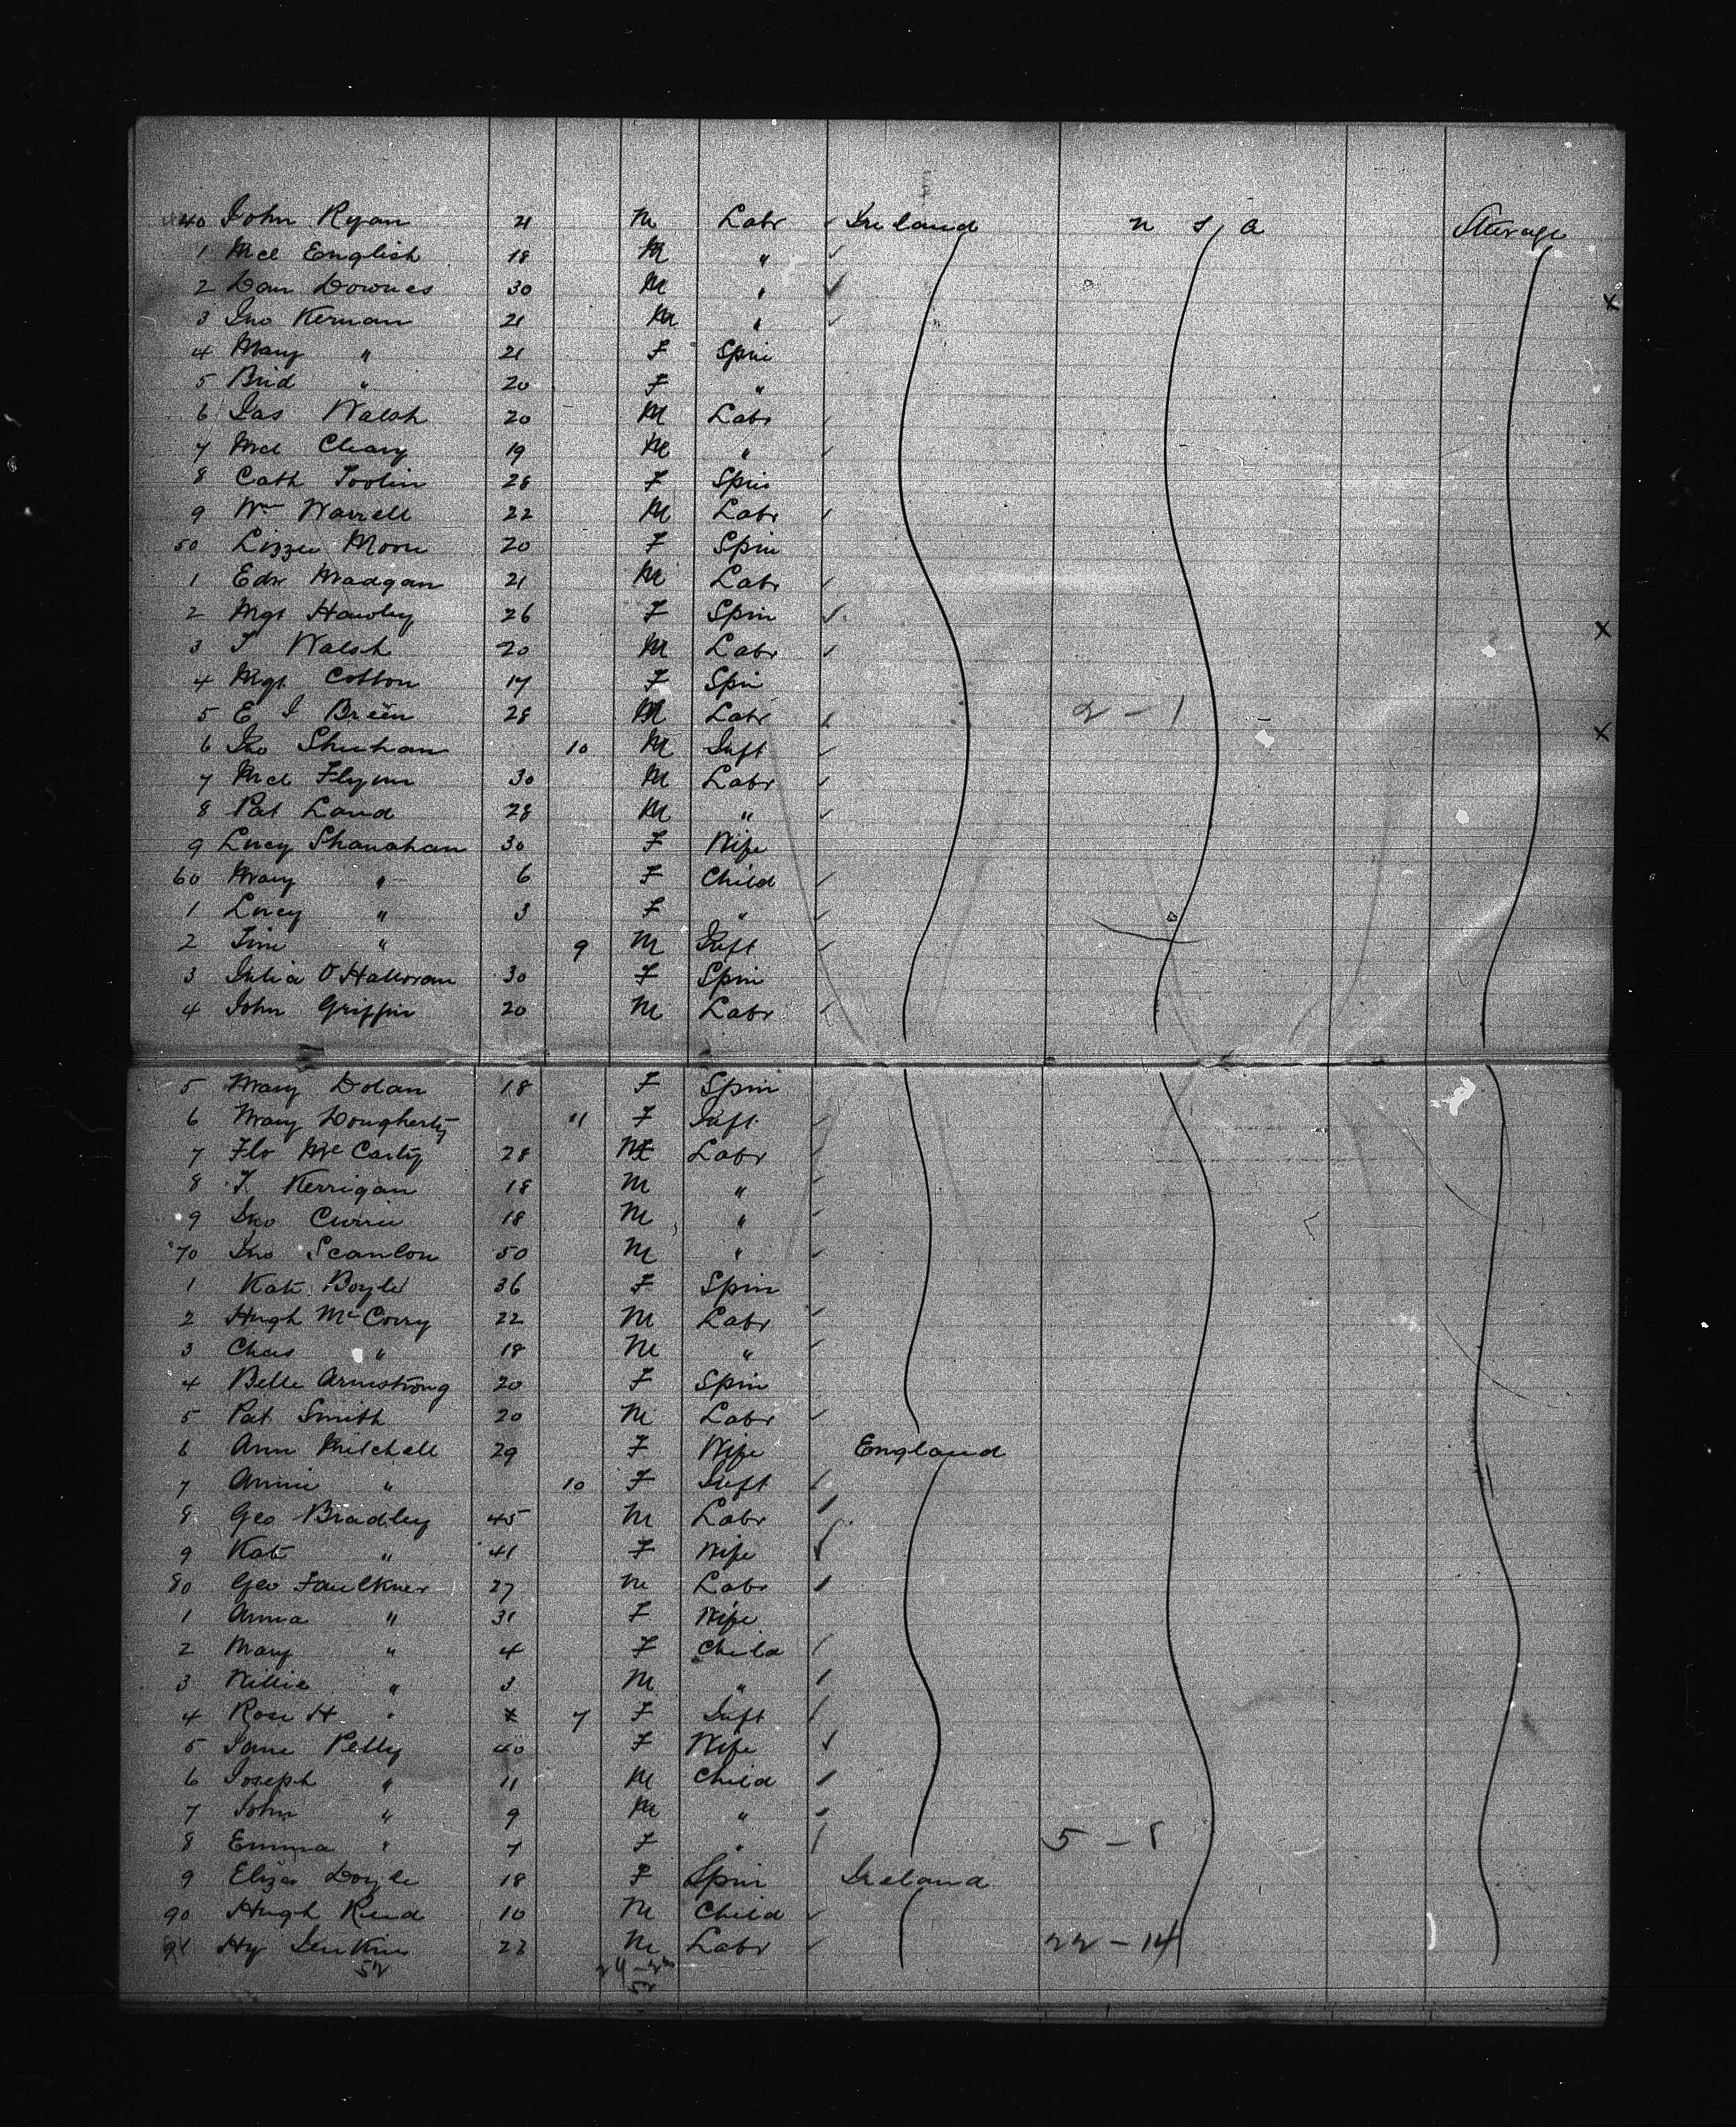 440 John Ryan 21 M Labr ✓ Ireland U S A Steerage
1 Mcl English 18 M " ✓
2 Dan Downes 30 M " ✓ x
3 Jno Kernan 21 M " ✓
4 Mary " 21 F Spin
5 Brid " 20 F "
6 Jas Walsh 20 M Labr ✓
7 Mcl Cleary 19 M " ✓
8 Cath Toolin 28 F Spin
9 Wm Warrell 22 M Labr ✓
50 Lizzie Moore 20 F Spin
1 Edw Madgan 21 M Labr ✓
2 Mgt Hawley 26 F Spin ✓ x
3 T Walsh 20 M Labr ✓
4 Mgt Cotton 17 F Spin
5 E J Breen 28 M Labr ✓ 2 - 1
6 Jno Sheehan 10 M Inft ✓ x
7 Mcl Flynn 30 M Labr ✓
8 Pat Land 28 M " ✓
9 Lucy Shanahan 30 F Wife
60 Mary " 6 F Child ✓
1 Lucy " 3 F " ✓
2 Tim " 9 M Inft ✓
3 Julia O'Halloran 30 F Spin
4 John Griffin 20 M Labr ✓
5 Mary Dolan 18 F Spin
6 Mary Dougherty 11 F Inft ✓
7 Flo McCarty 28 M Labr ✓
8 T Kerrigan 18 M " ✓
9 Jno Currie 18 M " ✓
70 Jno Scanlon 50 M " ✓
1 Kate Boyle 36 F Spin
2 Hugh McCorry 22 M Labr ✓
3 Chas " 18 M " ✓
4 Belle Armstrong 20 F Spin
5 Pat Smith 20 M Labr ✓
6 Ann Mitchell 29 F Wife England
7 Annie " 10 F Inft ✓
8 Geo Bradley 45 M Labr ✓
9 Kate " 41 F Wife ✓
80 Geo Faulkner 27 M Labr ✓
1 Anna " 31 F Wife
2 Mary " 4 F Child ✓
3 Willie " 3 M " ✓
4 Rose H " 7 F Inft ✓
5 Jane Pelly 40 F Wife ✓
6 Joseph " 11 M Child ✓
7 John " 9 M " ✓
8 Emma " 7 F " ✓ 5 - 8
9 Eliza Doyle 18 F Spin Ireland
90 Hugh Reid 10 M Child ✓
91 Hy Jenkins 23 M Labr ✓ 22 - 14
52
52